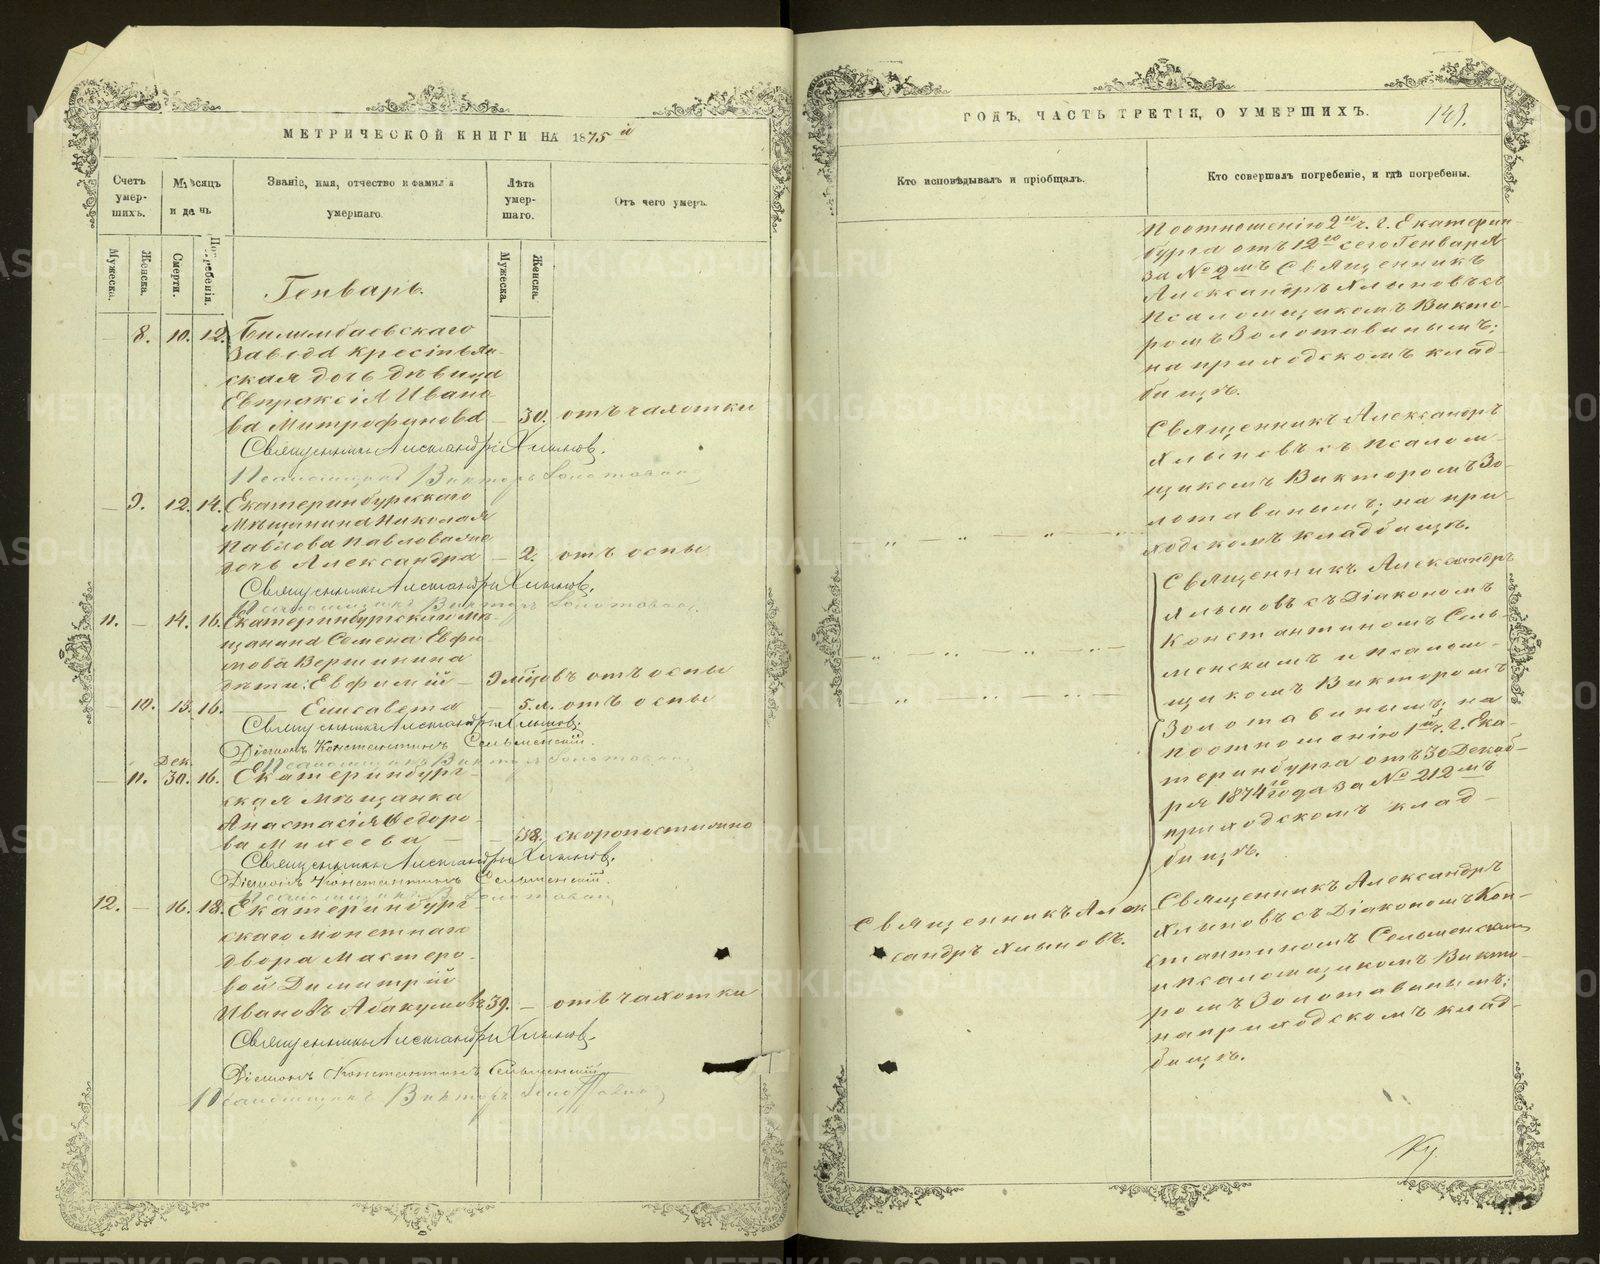 МЕТРИЧЕСКОЙ КНИГИ НА 1875 й
Счетъ умер-шихъ.
Мѣсяцъ и день
Званіе, имя, отчество и фамилія умершаго.
Лѣта умер-шаго.
Отъ чего умеръ.
Мужеска.
Женска.
Смерти.
Погребенія.
Мужеска.
Женска.
Генварь.
— 8. 10. 12. Билимбаевскаго
завода крестьян-
ская дочь дѣвица
Евпраксія Ивано-
ва Митрофанова — 30. отъ чахотки
Священникъ Александръ Хлыновъ.
Псаломщикъ Викторъ Золотавинъ
— 9. 12. 14. Екатеринбургскаго
мѣщанина Николая
Павлова Павлова
дочь Александра — 2. отъ оспы
Священникъ Александръ Хлыновъ.
Псаломщикъ Викторъ Золотавинъ
11. — 14. 16. Екатеринбургскаго мѣ-
щанина Семена Евфи-
мова Вершинина
дѣти: Евфимій — 9 мѣсцовъ отъ оспы
10. 13. 16. — Елисавета — 5. л. отъ оспы
Священникъ Александръ Хлыновъ.
Діаконъ Константинъ Сельменскій.
Псаломщикъ Викторъ Золотавинъ
Дек.
— 11. 30. 16. Екатеринбург-
ская мѣщанка
Анастасія Ѳедоро-
ва Михеева — 38. скоропостижно
Священникъ Александръ Хлыновъ.
Діаконъ Константинъ Сельменскій.
Псаломщикъ В. Золотавинъ
12. — 16. 18. Екатеринбург-
скаго монетнаго
двора мастеро-
вой Димитрій
Ивановъ Абакумовъ 39. — отъ чахотки
Священникъ Александръ Хлыновъ.
Діаконъ Константинъ Сельменскій
Псаломщикъ Викторъ Золотавинъ
ГОДЪ, ЧАСТЬ ТРЕТІЯ, О УМЕРШИХЪ.
143.
Кто исповѣдывалъ и пріобщалъ.
Кто совершалъ погребеніе, и гдѣ погребены.
По отношенію 2й ч. г. Екатерин-
бурга отъ 12го сего Генваря
за № 2мъ Священникъ
Александръ Хлыновъ съ
Псаломщикомъ Викто-
ромъ Золотавинымъ;
на приходскомъ клад-
бищѣ.
Священникъ Александръ
Хлыновъ съ Псалом-
щикомъ Викторомъ Зо-
лотавинымъ; на при-
ходскомъ кладбищѣ.
Священникъ Александръ
Хлыновъ съ Діакономъ
Константиномъ Сель-
менскимъ и Псалом-
щикомъ Викторомъ
Золотавинымъ; на
по отношенію 1й ч. г. Ека-
теринбурга отъ 30 Декаб-
ря 1874го года за № 212мъ
приходскомъ клад-
бищѣ.
Священникъ Алек-
сандръ Хлыновъ.
Священникъ Александръ
Хлыновъ съ Діакономъ Кон-
стантиномъ Сельменскимъ
и Псаломщикомъ Викто-
ромъ Золотавинымъ;
на приходскомъ клад-
бищѣ.
METRIKI.GASO-URAL.RU